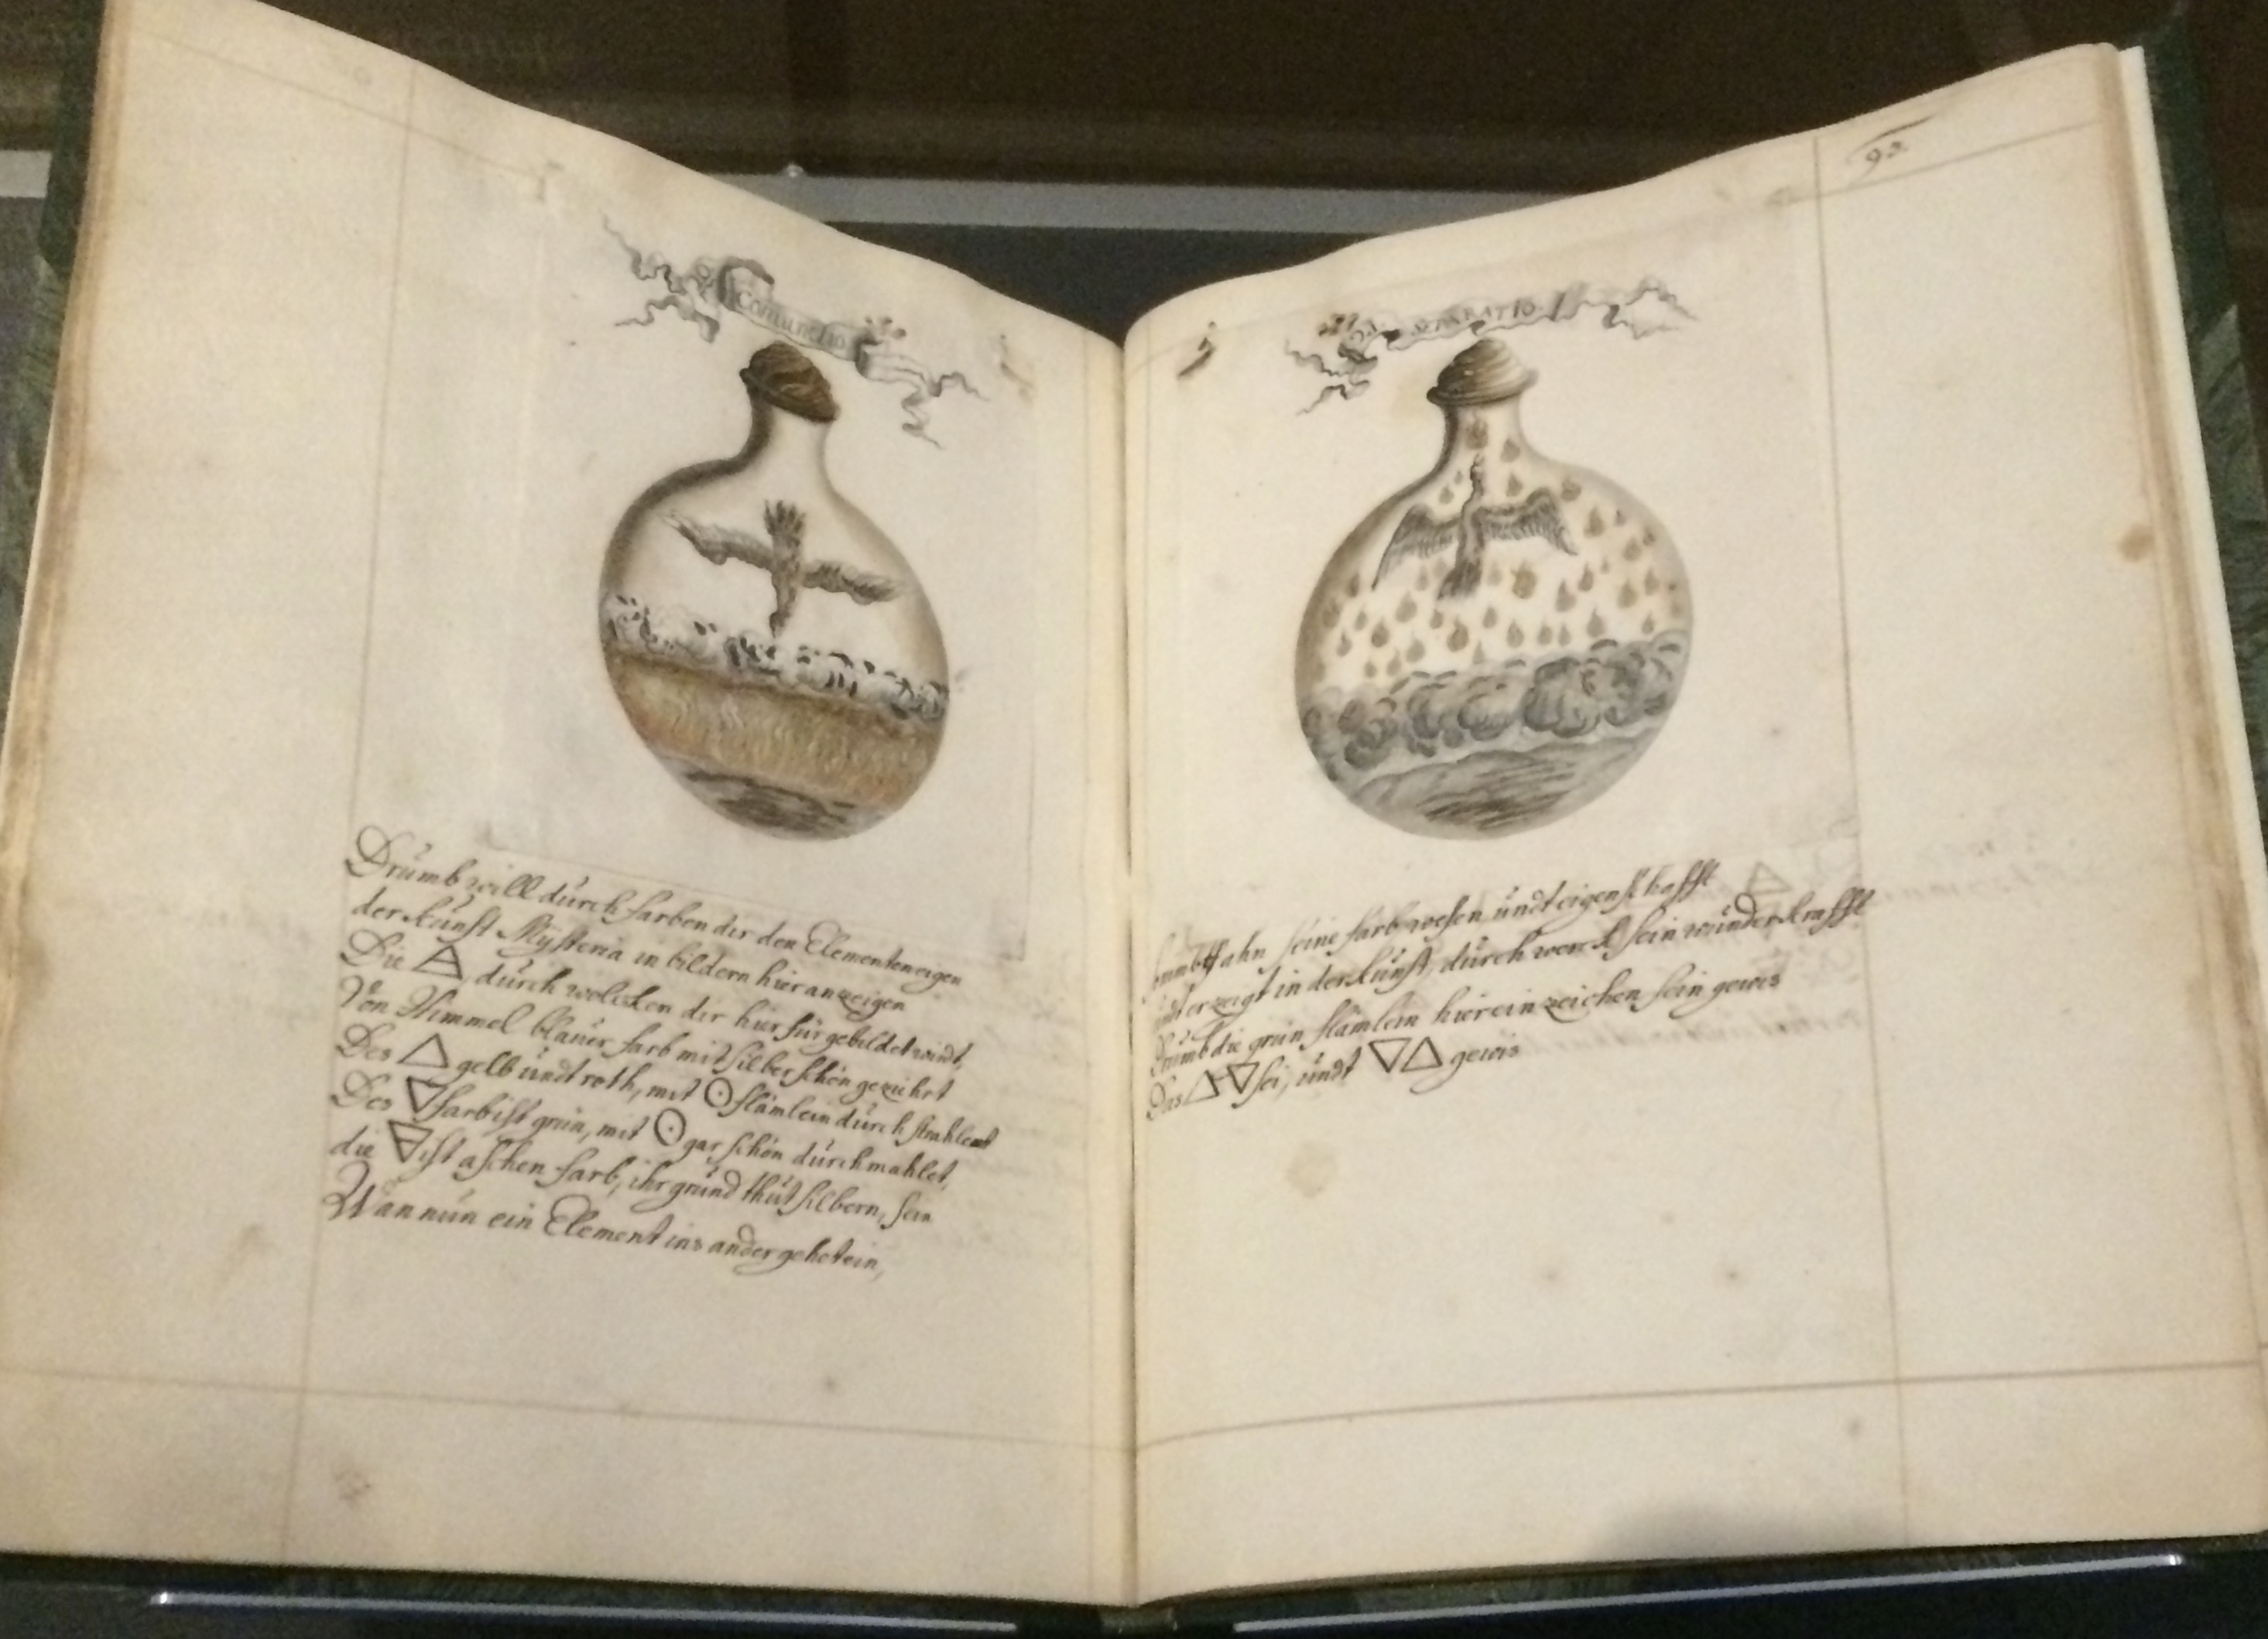 Coniunctio
Drumb will durch farben dir den Elementen eigen
der kunst Mysteria in bildern hier anzeigen
Die 🜁 durch wolcken dir hier fürgebildet wirdt,
Von Himmel blauer farb mit silber schön geziehrt
Des 🜂 gelb undt roth, mit ☉ flämlein durchstrahlent
Des 🜄 farb ist grün, mit ☉ gar schön durchmahlet,
die 🜃 ist aschen farb, ihr grund thut silbern, sein
Wan nun ein Element ins ander gehet ein,
92
SEPARATIO
ahn seine farb wesen undt eigenschafft
undt erzeigt in der kunst, durch werck sein wunderkrafft
Drumb die grün flämlein hier ein zeichen sein gewis
Das 🜂 🜄 sei, undt 🜄 🜂 gewis